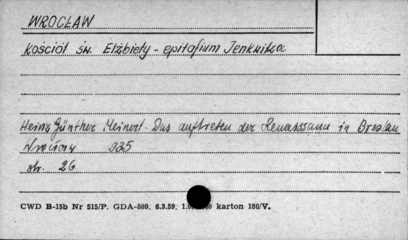 WROCŁAW
Kościół św. Elżbiety - epitafium Jenkwitza
Heinz Günther Meinert. Das auftreten der Renaissance in Breslau
335
str. 26
CWD B-15b Nr 515/P. GDA-869. 6.3.59. karton 180/V.